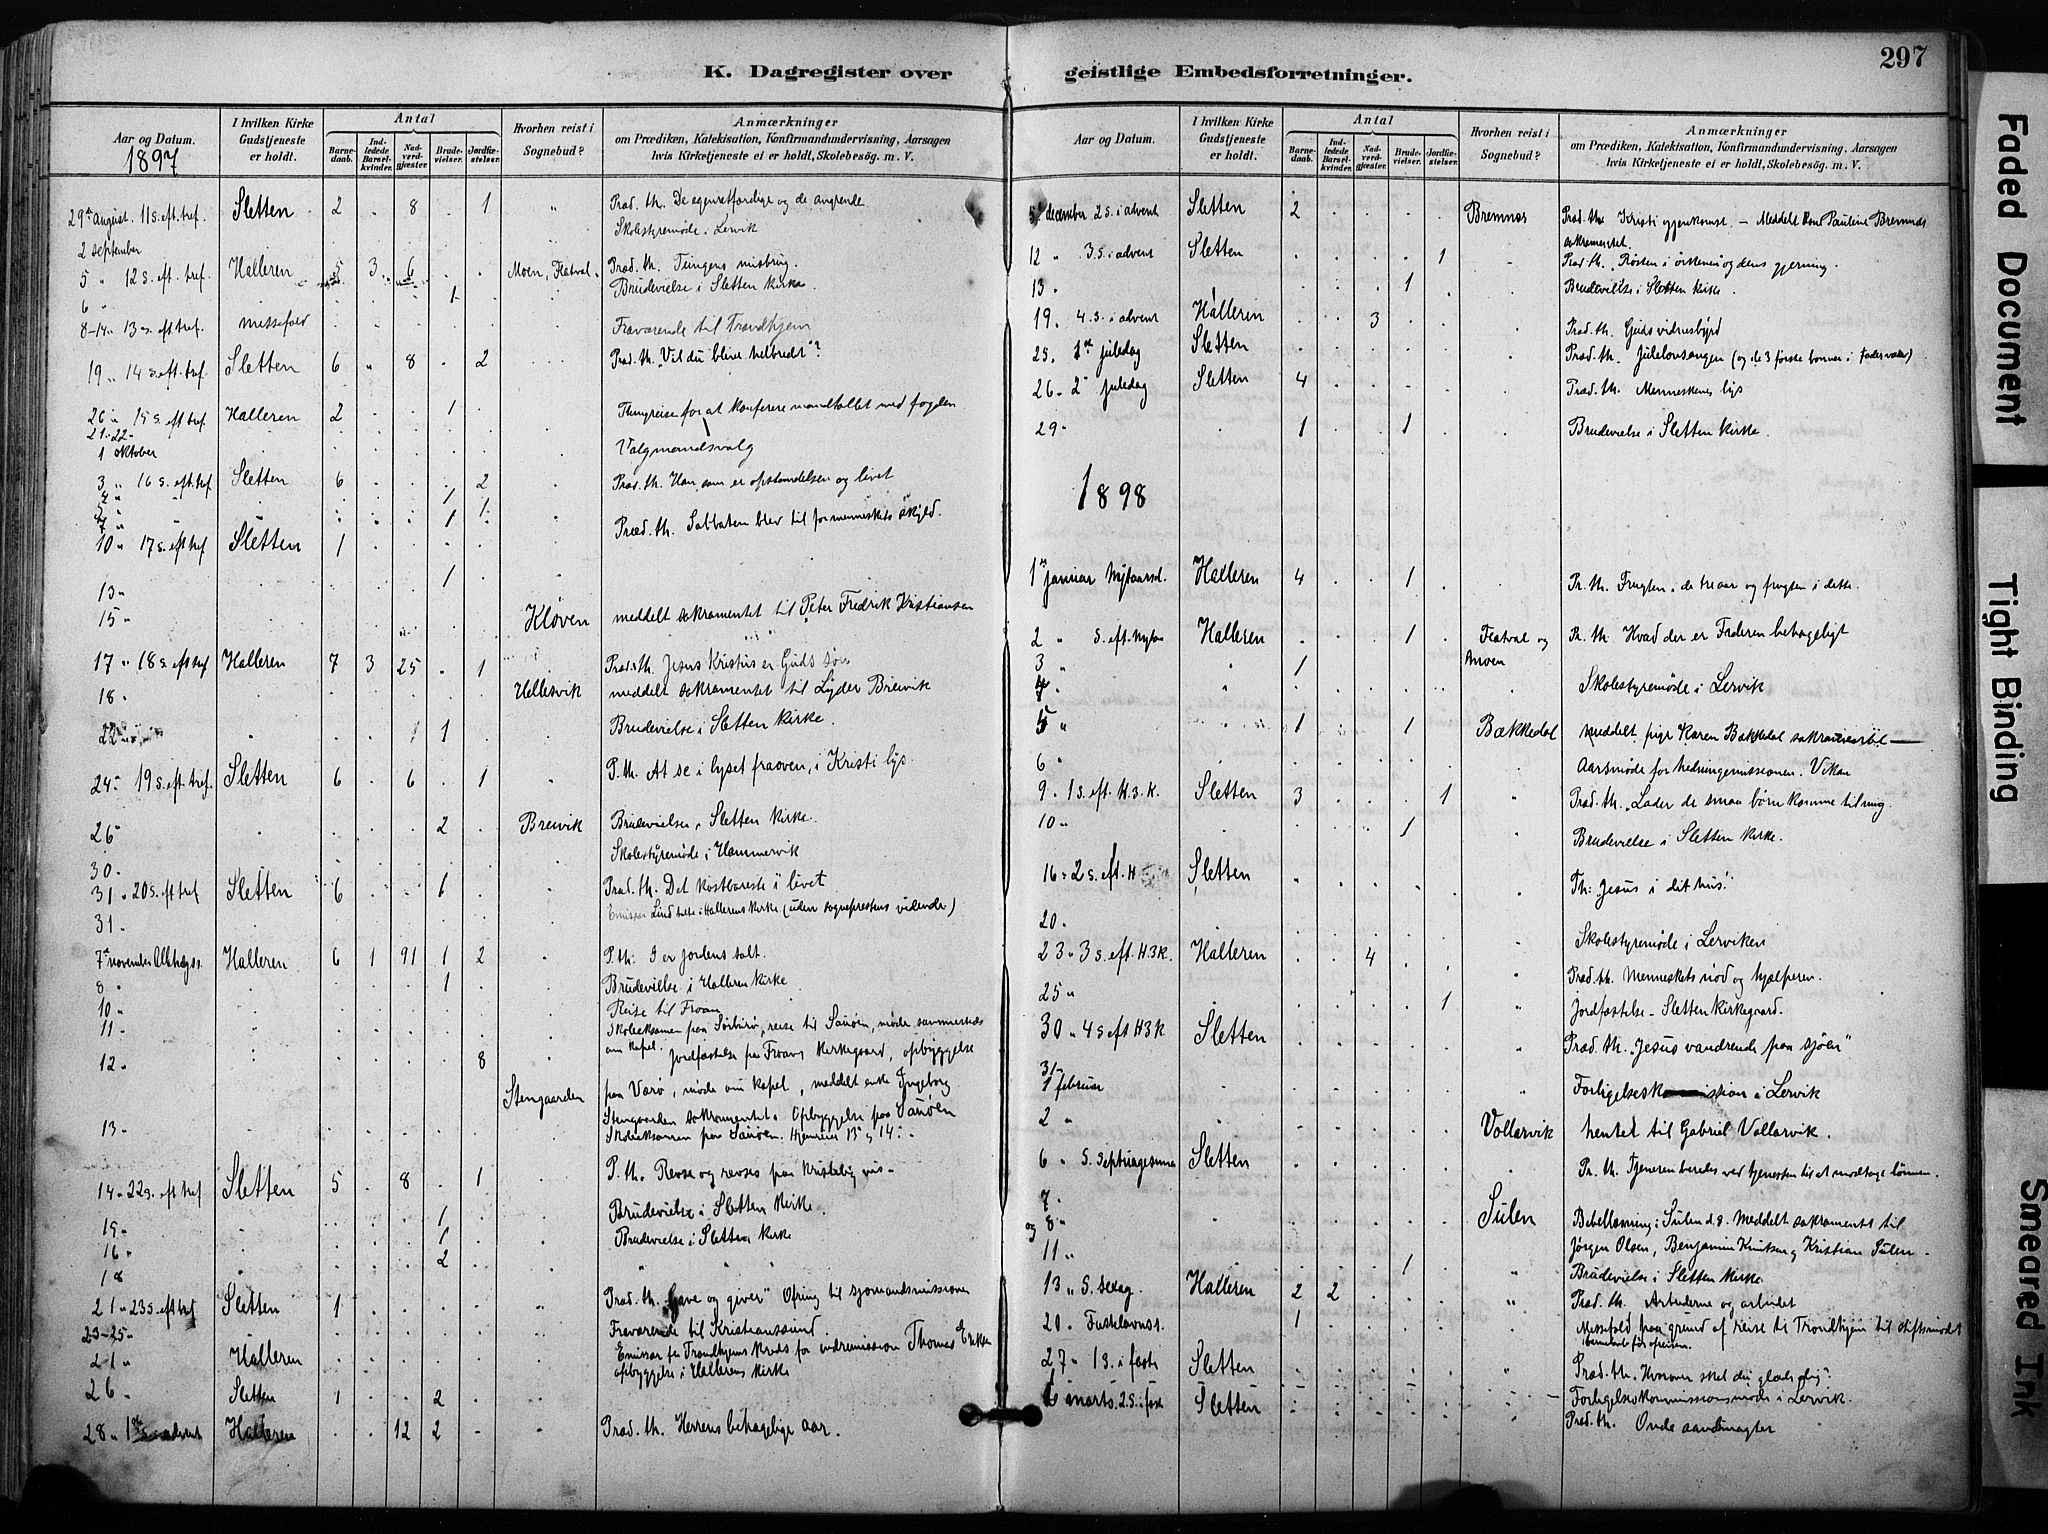 K. Dagregister over
Aar og Datum.
1897
I hvilken Kirke Gudstjeneste er holdt.
Antal
Barne-daab.
Ind-ledede Barsel-kvinder.
Nad-verd-gjester.
Brude-vielser.
Jordfæ-stelser.
Hvorhen reist i Sognebud?
Anmærkninger
om Prædiken, Katekisation, Konfirmandundervisning, Aarsagen
hvis Kirketjeneste ei er holdt, Skolebesøg. m. V.
29de august. 11 s. eft. tref. Sletten 2 " 8 . 1 " Præd. th. De egenretfærdige og de angrende
2 september Skolestyremøde i Lervik
5 " 12 s. eft. tref. Halleren 5 3 6 . . Moen, Flatval. Præd. th. Tungens misbrug.
6 " 1 Brudevielse i Sletten kirke
8-14. 13 s. eft tref. messefald Fraværende til Trondhjem
19 " 14 s. eft. tref. Sletten 6 " 8 . 2 Præd. th. "Vil du blive helbredt"?
26 " 15 s. eft tref. Halleren 2 . . 1
21-22- Thingreise for at konferere mandtallet med fogden
1 oktober Valgmandsvalg
3 " 16 s. eft. tref Sletten 6 . . . 2 Præd. th. Han, som er opstandelsen og livet
4 " 1
5 " 1
7 " 1
10 " 17 s. eft tref Sletten 1 Præd. th. Sabbaten blev til for menneskets skyld.
13 " 1
15 " Kløven meddelt sakramentet til Peter Fredrik Kristiansen
17 " 18 s. eft tref Halleren 7 3 25 . 1 Præd. th. Jesus Kristus er Guds søn
18 " Hellesvik meddelt sakramentet til Lyder Breivik
22 1 Brudevielse i Sletten kirke.
24 " 19 s. eft. tref. Sletten 6 . 6 . 1 P. th. At se i lyset fraoven, i Kristi lys
26 " 2 Breivik Brudevielse, Sletten kirke.
30 " Skolestyremøde i Hammervik
31 " 20 s. eft tref Sletten 6 . . 1 Præd. th. Det kostbareste i livet
31 " Emissær Lind talte i Hallerens kirke (uden sogneprestens vidende)
7de november Allehelgs. Halleren 6 1 91 1 2 P. th. I er jordens salt.
8 " 1 Brudevielse i Halleren kirke
10 " Reise til Froan
11 " Skoleeksamen paa Sørburø, reise til Sauøen, møde sammesteds
om kapel.
12 " 8 Jordfæstelse paa Froans kirkegaard, opbyggelse
Stengaarden paa Varø, møde om kapel, meddelt enke Ingeborg
Stengaarden sakramentet. Opbyggelse paa Sauøen
13 " Skoleeksamen paa Sauøen. Hjemreise 13 og 14.
14 " 22 s. eft tref Sletten 5 . 8 . 1 P. th. Revse og revses paa kristelig vis
19 " 1 Brudevielse i Sletten kirke.
16 " 1 Brudevielse i Sletten kirke
18 2 " " "
21 " 23 s. eft tref Sletten 1 Præd. th. "Gave og giver" Ofring til sjømandsmissionen
23-25 " Fraværende til Kristianssund.
21 " Halleren Emissær fra Trondhjems kreds for indremissionen Thomas
opbyggelse i Hallerens kirke
26 " Sletten 1 . . 2
28 " 1ste s. i advent Halleren . . 12 2 Præd. th. Herrens behagelige aar.
geistlige Embedsforretninger.
297
Aar og Datum.
I hvilken Kirke Gudstjeneste er holdt.
Antal
Barne-daab.
Ind-ledede Barsel-kvinder.
Nad-verd-gjester.
Brude-vielser.
Jordfæ-stelser.
Hvorhen reist i Sognebud?
Anmærkninger
om Prædiken, Katekisation, Konfirmandundervisning. Aarsagen
hvis Kirketjeneste ei er holdt, Skolebesøg. m. V.
5te december 2 s. i advent Sletten 2 Bremnes Præd. th. Kristi gjenkomst. - Meddelt Pauline Bremnes
sakramentet.
12 " 3 s. i advent Sletten 1 Præd. th. Røsten i ørkenen og dens gjerning.
13 " 1 Brudevielse i Sletten kirke.
19 " 4. s. i advent Halleren . . 3 Præd. th. Guds vidnesbyrd
25. 1ste juledag Sletten Præd. th. Julelovsangen (og de 3 første bønner i fadervor)
26 " 2den juledag Sletten 4 Præd. th. Menneskenes lys
29 " 1 . . 1 Brudevielse i Sletten kirke.
1898
1ste januar Nytaarsd. Halleren 4 . . 1 Pr. th. Frugten i de tre aar og frugten i dette.
2 " S. eft. Nytaar Halleren . . . 1 Flatval og Pr. th. Hvad der er Faderen behageligt
3 " 1 Moen
4 " Skolestyremøde i Lervik
5 " 1 . . 1 Bækkedal Meddelt pige Karen Bækkedal sakramentet
6 " Aarsmøde for hedningemissionen. Vikan
9 " 1 s. eft. H. 3. K. Sletten 3 . . . 1 Præd. th. "Lader de smaa børn komme til mig
10 " 1 Brudevielse i Sletten kirke.
16 " 2 s. eft. H Sletten Th: Jesus i dit hus!
20 " Skolestyremøde i Lerviken
23 " 3 s. eft. H.3.K. Halleren . . 4 Præd. th. Menneskets nød og hjælperen.
25 " 1 Jordfæstelse - Sletten kirkegaard.
30 " 4 s eft H3K Sletten Præd. th. "Jesus vandrende paa sjøen"
31 "
1 februar Forligelseskommission i Lervik
2 " Vollarvik hentet til Gabriel Vollarvik.
6 " S. Septuagesima Sletten Pr. th. Tjeneren beredes ved tjenesten til at modtage lønnen.
7 "
og 8 " Sulen Bibellæsning i Sulen d. 8. Meddelt sakramentet til
Jørgen Olsen, Benjamin Knutsen og Kristian Sulen
11 " 1 Brudevielse i Sletten kirke
13 " S. Sexag. Halleren 2 2 Præd. th. Arbeiderne og arbeidet
20 " Fastelavnst. 1 Messefald paa grund af reise til Trondhjem til stiftsmødet
27 " 1 S. i faste Sletten Præd. th. Hvorover skal du glæde dig?
Forligelseskommissionsmøde i Lervik.
6 marts. 2. S. i faste Sletten Præd. th. Onde aandsmagter
Faded Document
Tight Binding
Smeared Ink